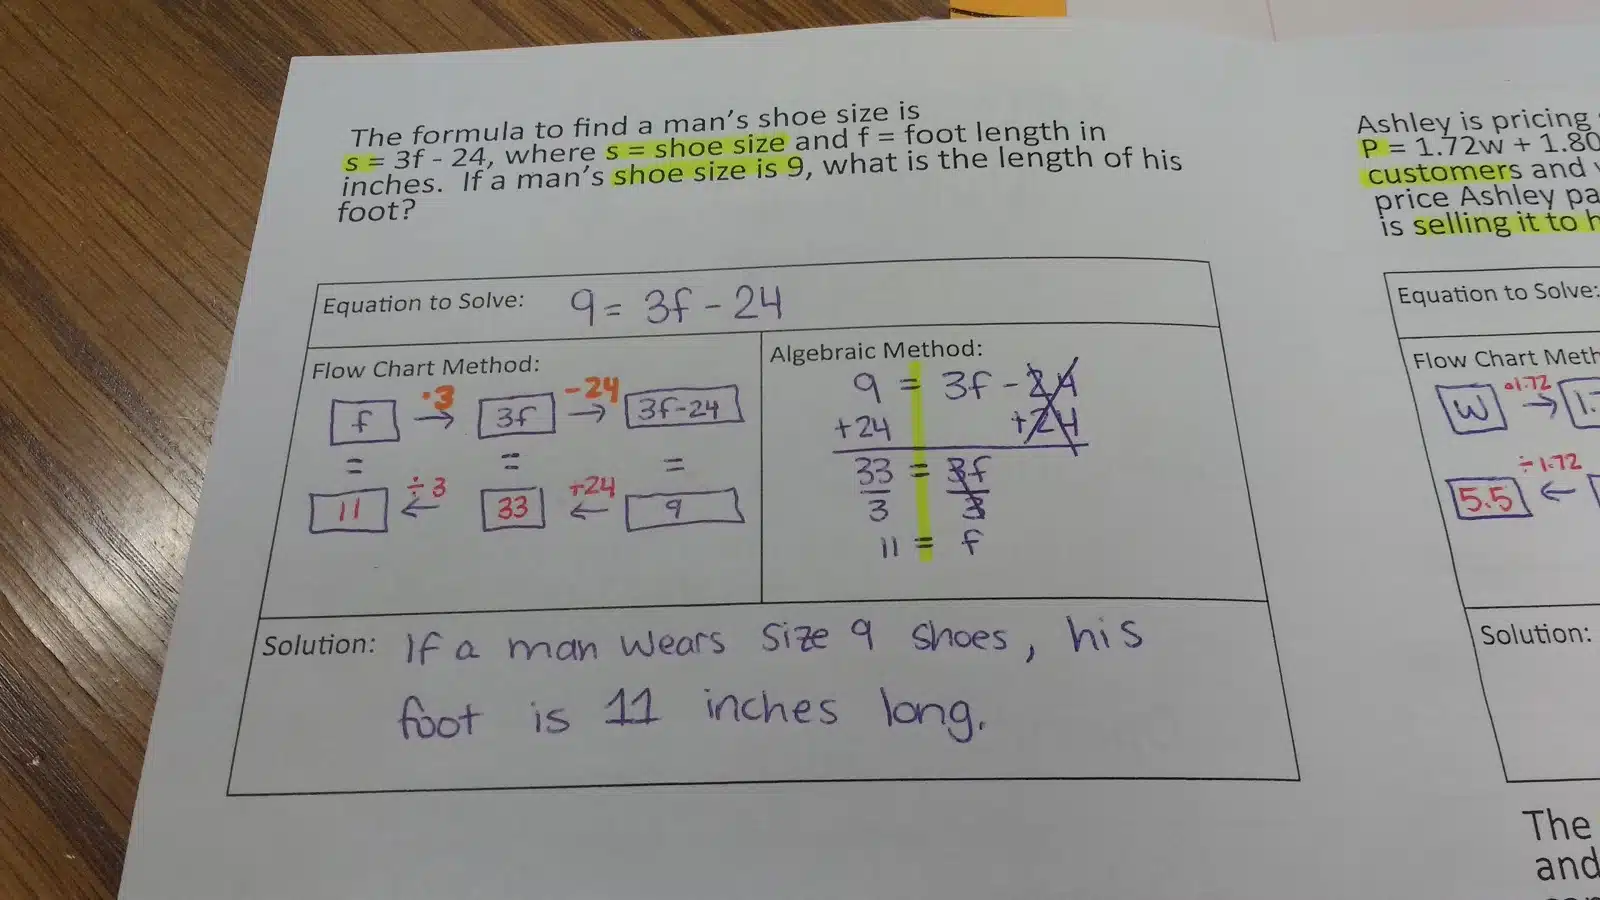 The formula to find a man's shoe size is
s = 3f - 24, where s = shoe size and f = foot length in
inches. If a man's shoe size is 9, what is the length of his
foot?
Equation to Solve: 9 = 3f - 24
Flow Chart Method:
·3 -24
f → 3f → 3f-24
= = =
÷3 +24
11 ← 33 ← 9
Algebraic Method:
9 = 3f - 24
+24 +24
33 = 3f
3 3
11 = f
Solution: If a man wears size 9 shoes, his
foot is 11 inches long.
Ashley is pricing
P = 1.72w + 1.80
customers and
price Ashley pa
is selling it to h
Equation to Solve:
Flow Chart Meth
•1.72
W → 1.
÷1.72
5.5 ←
Solution:
The
and